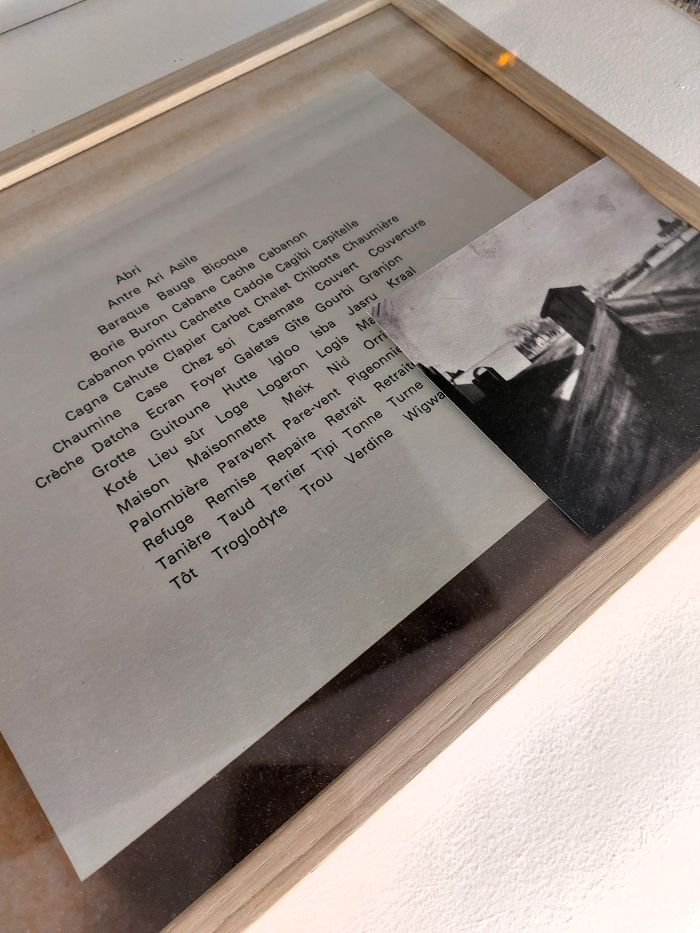 Abri
Antre Ari Asile
Baraque Bauge Bicoque
Borie Buron Cabane Cache Cabanon
Cabanon pointu Cachette Cadole Cagibi Capitelle
Cagna Cahute Clapier Carbet Chalet Chibotte Chaumière
Chaumine Case Chez soi Casemate Couvert Couverture
Crèche Datcha Ecran Foyer Galetas Gîte Gourbi Granjon
Grotte Guitoune Hutte Igloo Isba Jasru Kraal
Koté Lieu sûr Loge Logeron Logis
Maison Maisonnette Meix Nid
Palombière Paravent Pare-vent
Refuge Remise Repaire Retrait
Tanière Taud Terrier Tipi Tonne Turne
Tôt Troglodyte Trou Verdine